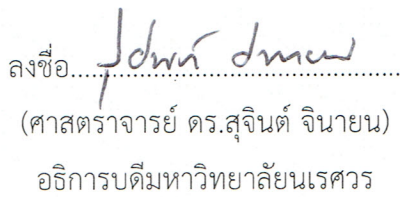 ลงชื่อ
(ศาสตราจารย์ ดร.สุจินต์ จินายน)
อธิการบดีมหาวิทยาลัยนเรศวร